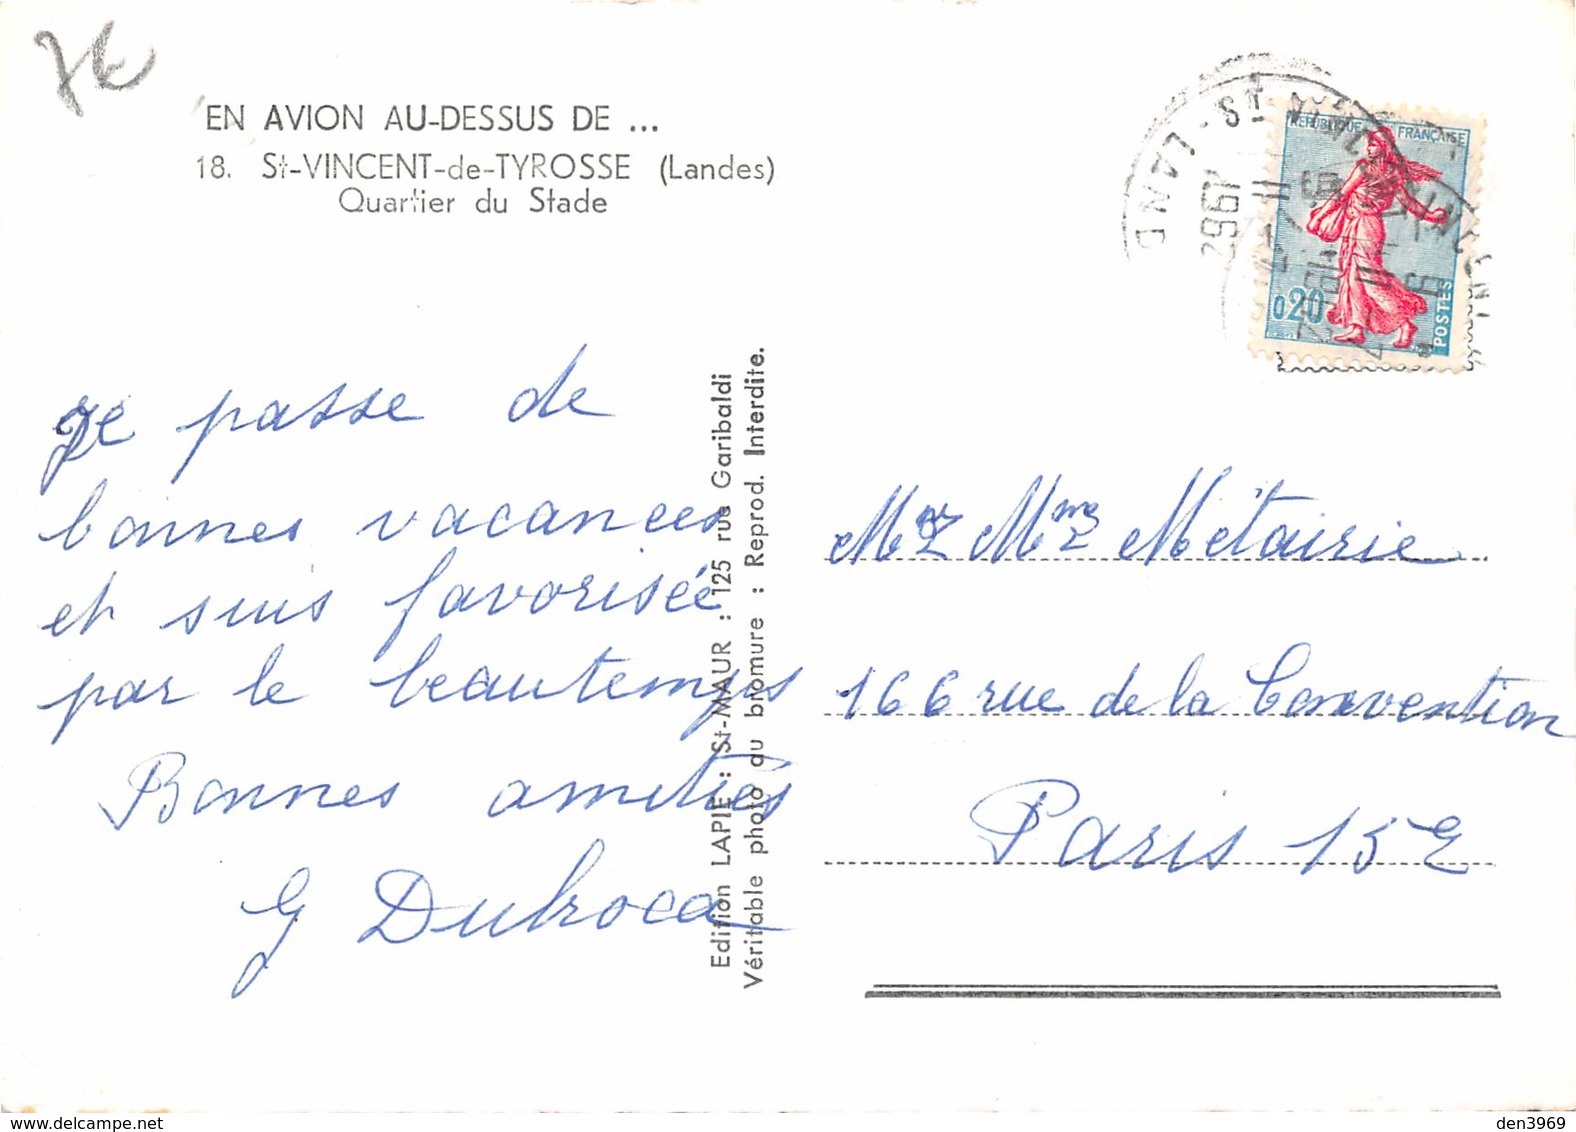 7€
EN AVION AU-DESSUS DE ...
18. St-VINCENT-de-TYROSSE (Landes)
Quartier du Stade
Je passe de
bonnes vacances
et suis favorisée
par le beau temps
Bonnes amitiés
G Dubroca
Edition LAPIE : St-MAUR : 125 rue Garibaldi
Véritable photo au bromure : Reprod. Interdite.
REPUBLIQUE FRANÇAISE
0.20
POSTES
1962
Mr & Mme Métairie
166 rue de la Convention
Paris 15e
den3969